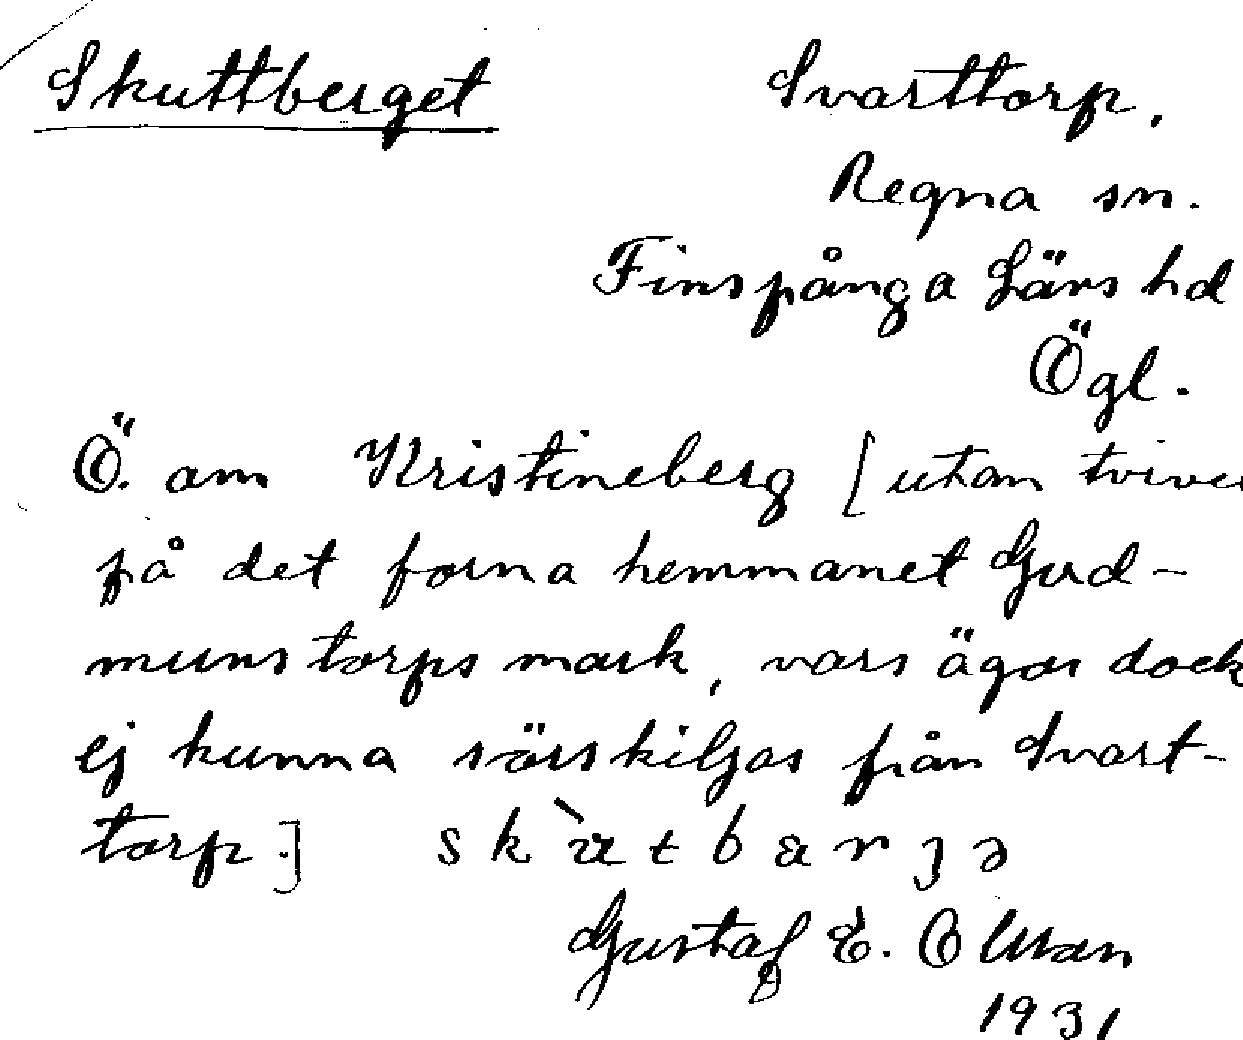 Skuttberget
Svarttorp,
Regna sn.
Finspånga Läns hd
Ögl.
Ö. om Kristineberg [utan
på det forna hemmanet Gud-
munstorps mark, vars ägor dock
ej kunna särskiljas från Svart-
torp.]
Gustaf E.
1931